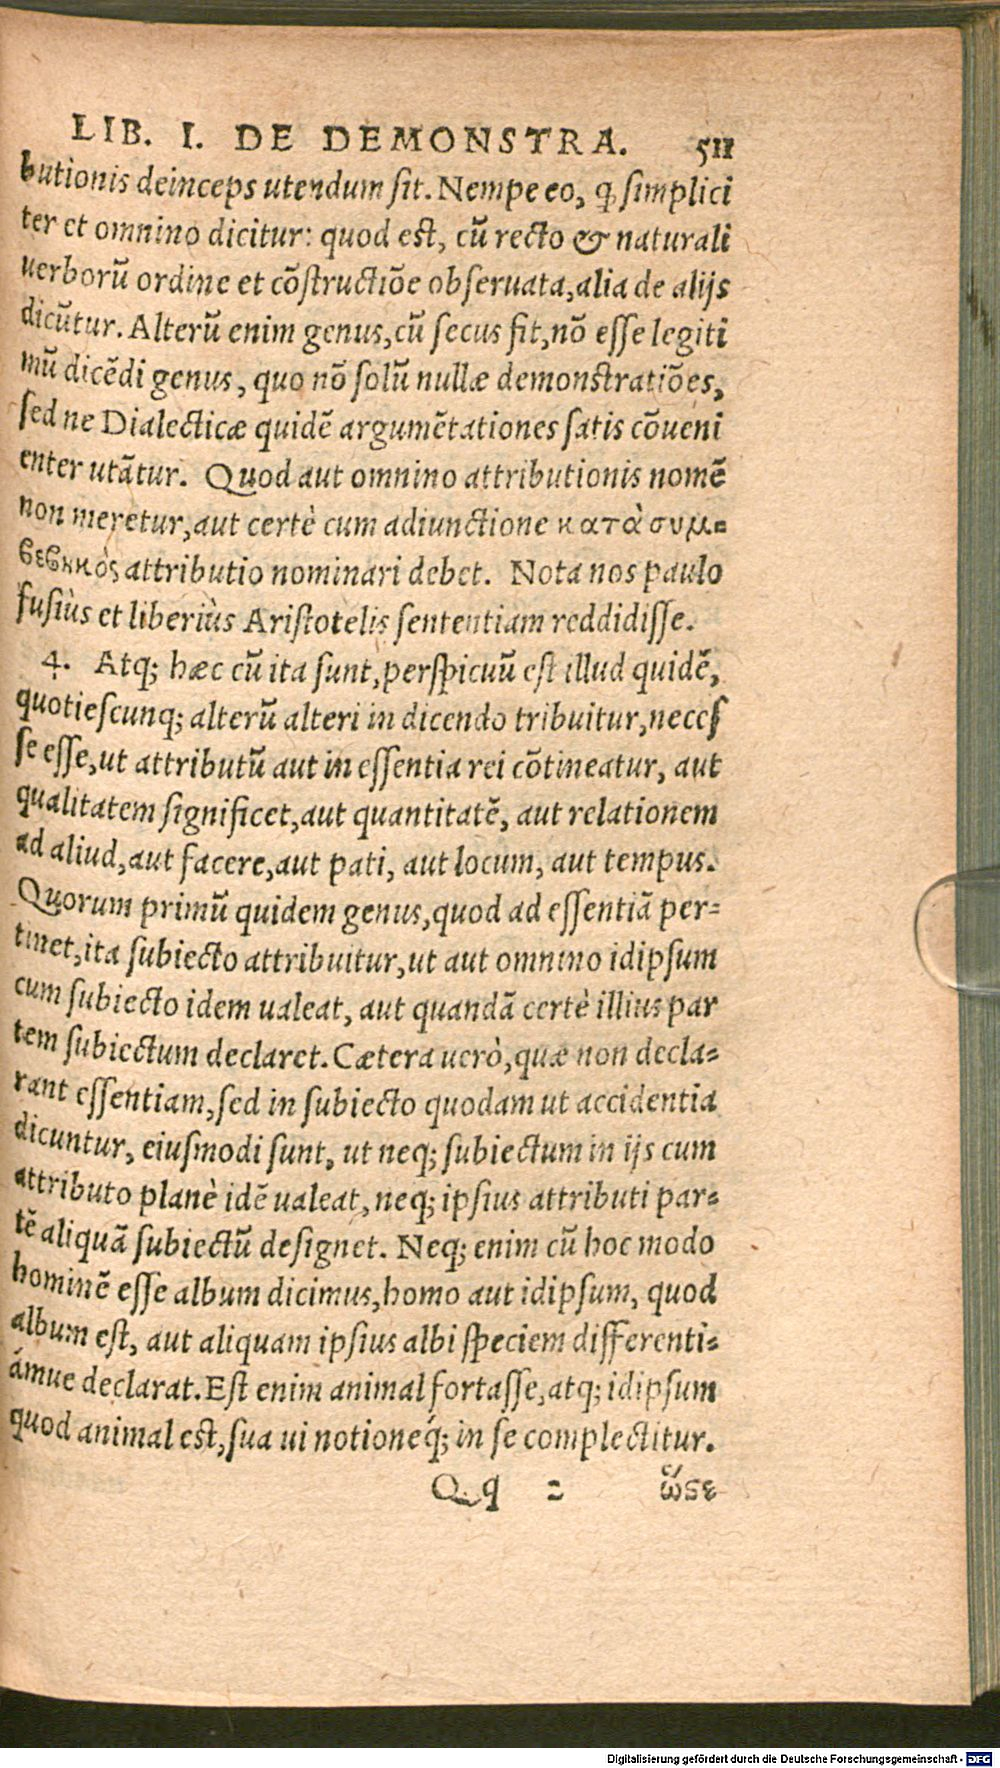 LIB. I. DE DEMONSTRA. 511
butionis deinceps utendum sit. Nempe eo, q̱ simplici
ter et omnino dicitur: quod est, cū recto & naturali
uerborū ordine et cōstructiōe obseruata, alia de alijs
dicūtur. Alterū enim genus, cū secus fit, nō esse legiti
mū dicēdi genus, quo nō solū nullæ demonstratiōes,
sed ne Dialecticæ quidē argumētationes satis cōueni
enter utātur. Quod aut omnino attributionis nomē
non meretur, aut certè cum adiunctione κατὰ συμ=
βεβηκὸς attributio nominari debet. Nota nos paulo
fusiùs et liberiùs Aristotelis sententiam reddidisse.
4. Atq; hæc cū ita sunt, perspicuū est illud quidē,
quotiescunq; alterū alteri in dicendo tribuitur, neces
se esse, ut attributū aut in essentia rei cōtineatur, aut
qualitatem significet, aut quantitatē, aut relationem
ad aliud, aut facere, aut pati, aut locum, aut tempus.
Quorum primū quidem genus, quod ad essentiā per=
tinet, ita subiecto attribuitur, ut aut omnino idipsum
cum subiecto idem ualeat, aut quandā certè illius par
tem subiectum declaret. Cætera uerò, quæ non decla=
rant essentiam, sed in subiecto quodam ut accidentia
dicuntur, eiusmodi sunt, ut neq; subiectum in ijs cum
attributo planè idē ualeat, neq; ipsius attributi par=
tē aliquā subiectū designet. Neq; enim cū hoc modo
hominē esse album dicimus, homo aut idipsum, quod
album est, aut aliquam ipsius albi speciem differenti=
ámue declarat. Est enim animal fortasse, atq; idipsum
quod animal est, sua ui notioneq́; in se complectitur.
Qq 2 ὥϛε
Digitalisierung gefördert durch die Deutsche Forschungsgemeinschaft - DFG